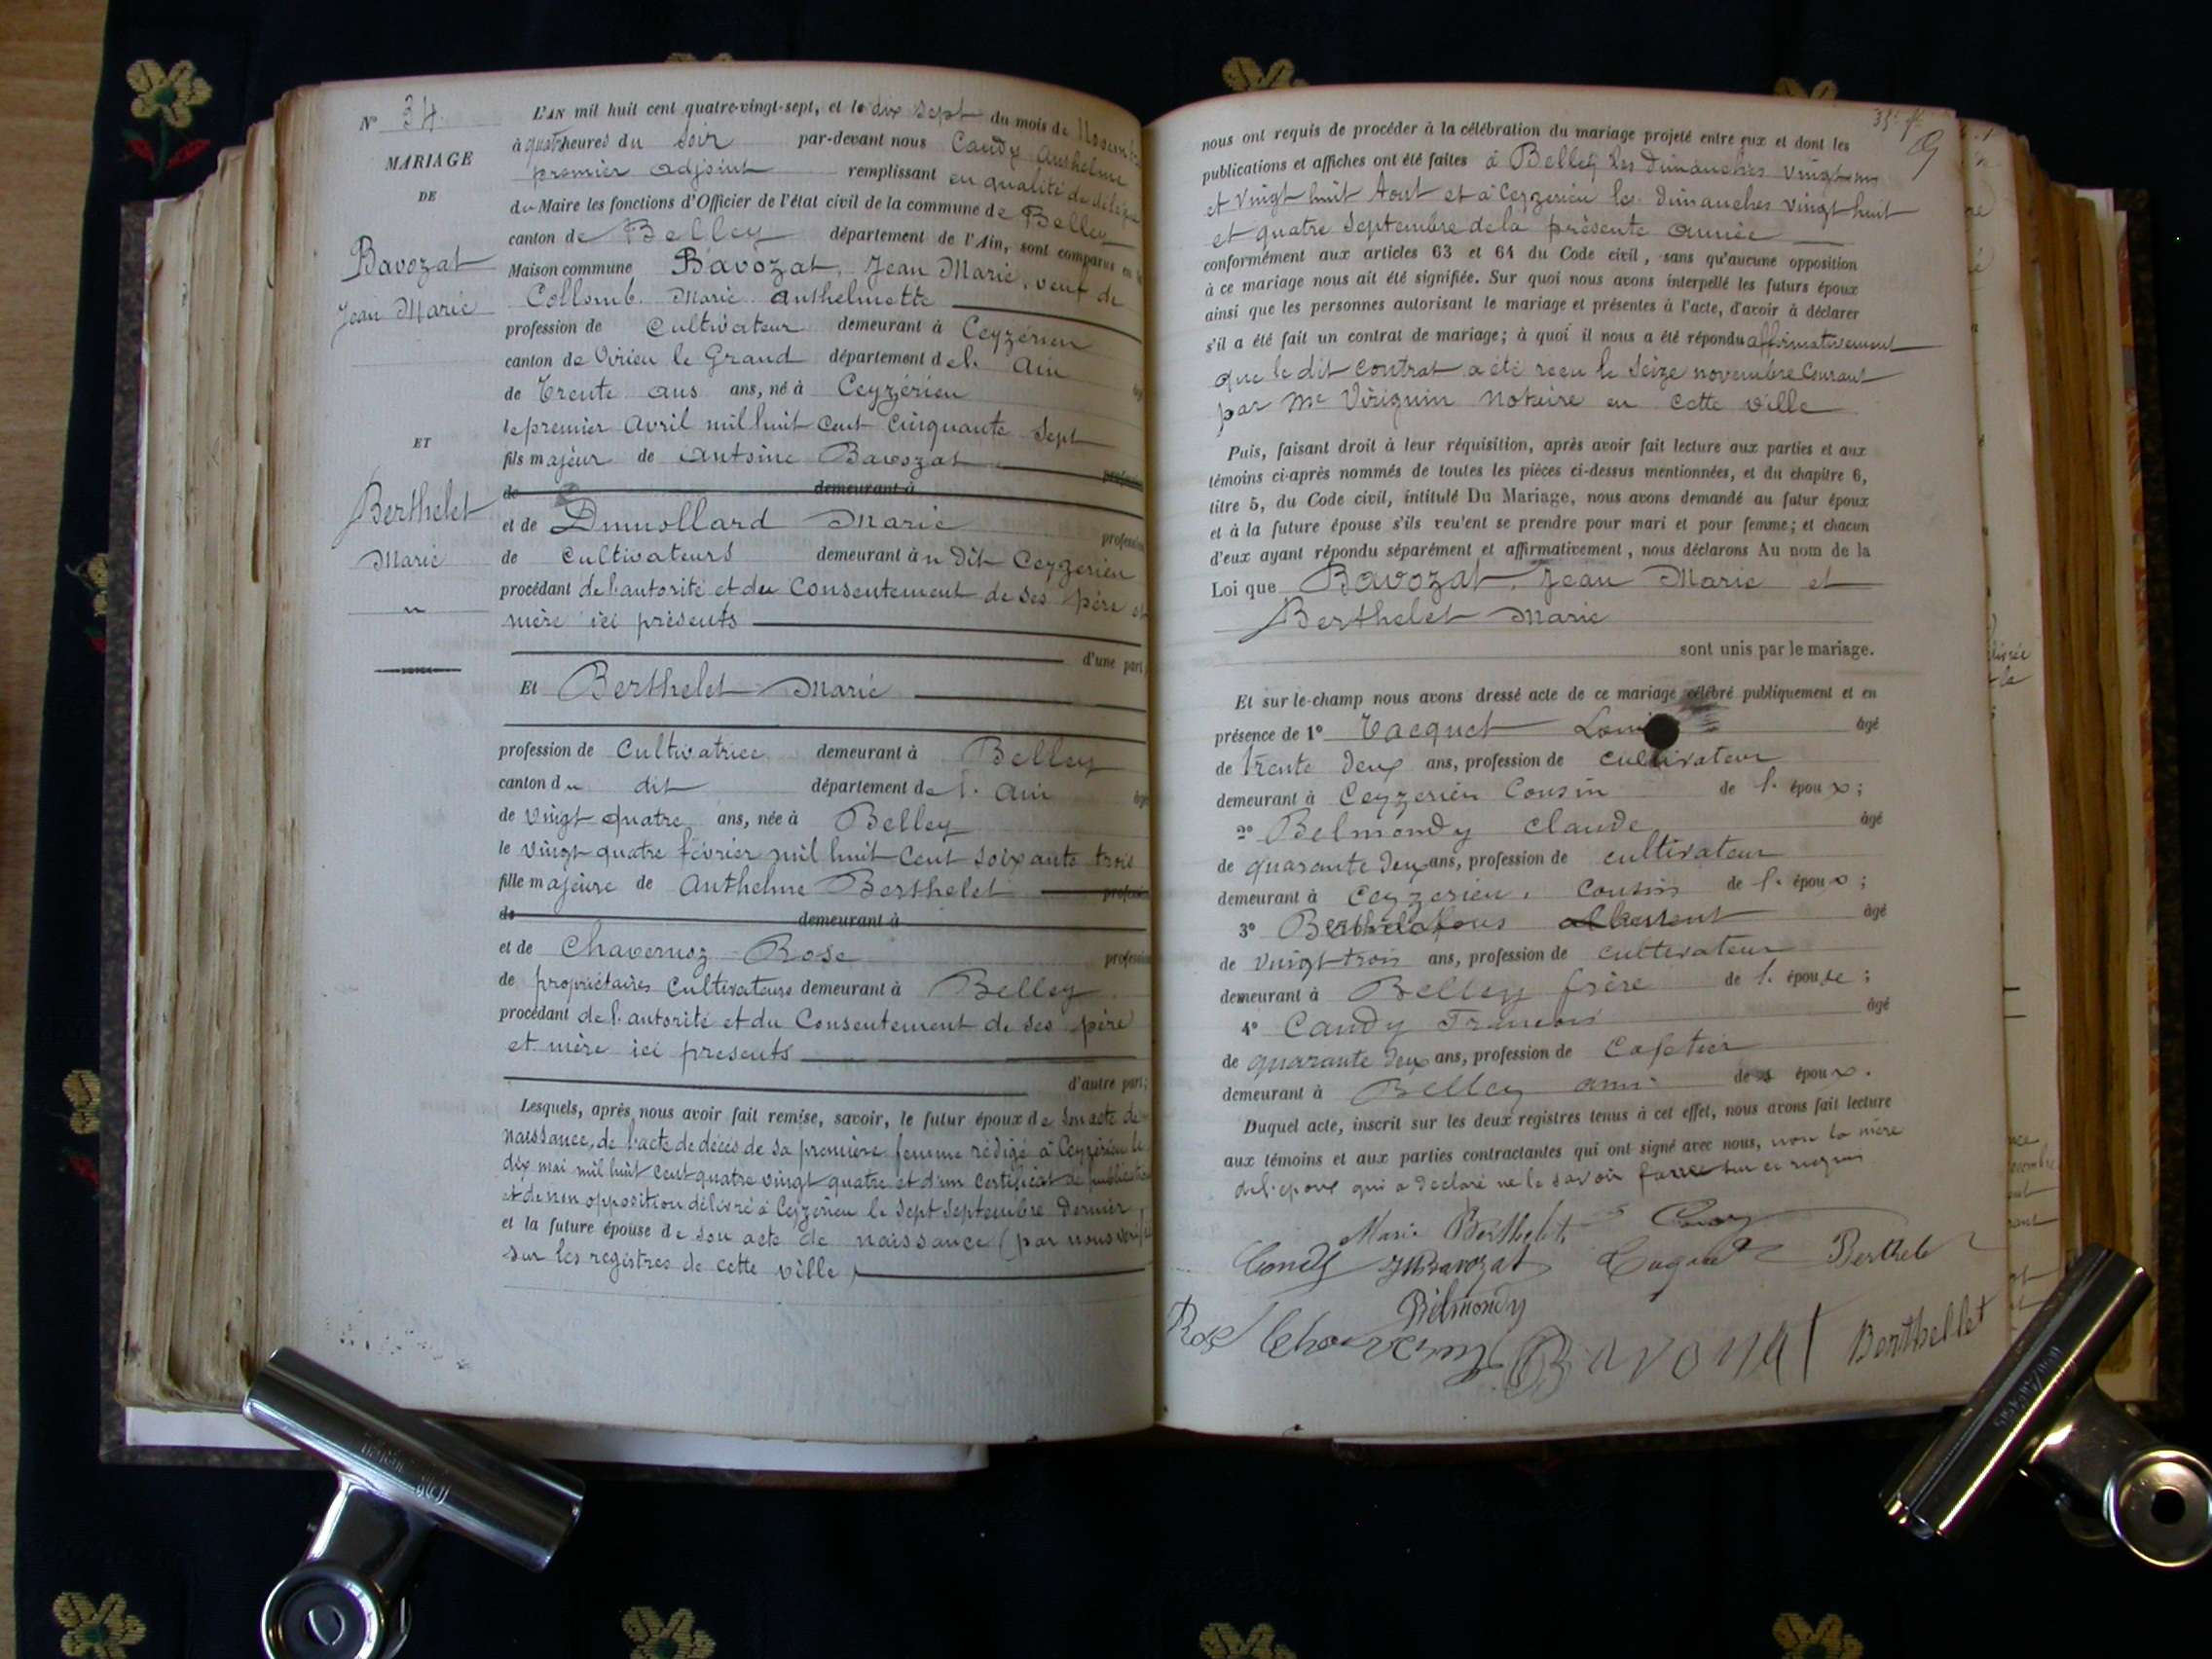 N° 34.
MARIAGE
DE
Bavozat
Jean Marie
ET
Berthelet
Marie
L'AN mil huit cent quatre-vingt-sept, et le dix sept du mois de Novembre
à quatre heures du soir par-devant nous Candy Anthelme
premier adjoint remplissant en qualité de délégué
du Maire les fonctions d'Officier de l'état civil de la commune de Belley
canton de Belley département de l'Ain, sont comparus en la
Maison commune Bavozat, Jean Marie, veuf de
Collomb Marie Anthelmette
profession de Cultivateur demeurant à Ceyzérieu
canton de Virieu le Grand département de l' Ain âgé
de Trente ans ans, né à Ceyzérieu
le premier Avril mil huit cent cinquante sept
fils majeur de Antoine Bavozat profession
de demeurant à
et de Dumollard Marie profession
de cultivateurs demeurant à u dit Ceyzerieu
procédant de l'autorité et du Consentement de ses père et
mère ici présents
d'une part,
Et Berthelet Marie
profession de Cultivatrice demeurant à Belley
canton du dit département de l' Ain âgé
de vingt quatre ans, née à Belley
le vingt quatre février mil huit cent soixante trois
fille majeure de Anthelme Berthelet profession
de demeurant à
et de Chavernoz Rose profession
de propriétaires Cultivateurs demeurant à Belley
procédant de l'autorité et du Consentement de ses père
et mère ici présents
d'autre part;
Lesquels, après nous avoir fait remise, savoir, le futur époux de son acte de
naissance, de l'acte de décès de sa première femme rédigé à Ceyzérieu le
dix mai mil huit cent quatre vingt quatre et d'un certificat de publication
et de non opposition délivré à Ceyzérieu le sept septembre dernier
et la future épouse de son acte de naissance (par nous vérifié
sur les registres de cette ville)
nous ont requis de procéder à la célébration du mariage projeté entre eux et dont les
publications et affiches ont été faites à Belley les Dimanches vingt un
et vingt huit Aout et à Ceyzerieu les Dimanches vingt huit
et quatre Septembre de la présente année
conformément aux articles 63 et 64 du Code civil, sans qu'aucune opposition
à ce mariage nous ait été signifiée. Sur quoi nous avons interpellé les futurs époux
ainsi que les personnes autorisant le mariage et présentes à l'acte, d'avoir à déclarer
s'il a été fait un contrat de mariage; à quoi il nous a été répondu affirmativement
que le dit contrat a été reçu le seize novembre courant
par Me Viriguin Notaire en cette ville
Puis, faisant droit à leur réquisition, après avoir fait lecture aux parties et aux
témoins ci-après nommés de toutes les pièces ci-dessus mentionnées, et du chapitre 6,
titre 5, du Code civil, intitulé Du Mariage, nous avons demandé au futur époux
et à la future épouse s'ils veulent se prendre pour mari et pour femme; et chacun
d'eux ayant répondu séparément et affirmativement, nous déclarons Au nom de la
Loi que Bavozat, Jean Marie et
Berthelet Marie
sont unis par le mariage.
Et sur-le-champ nous avons dressé acte de ce mariage célébré publiquement et en
présence de 1° Tacquet Louis âgé
de trente deux ans, profession de cultivateur
demeurant à Ceyzerieu Cousin de l' époux;
2° Belmondy Claude âgé
de quarante deux ans, profession de cultivateur
demeurant à Ceyzerieu, cousin de l' époux;
3° âgé
de vingt trois ans, profession de cultivateur
demeurant à Belley frère de l' épouse;
4° Candy Francois âgé
de quarante deux ans, profession de Cafetier
demeurant à Belley ami des époux.
Duquel acte, inscrit sur les deux registres tenus à cet effet, nous avons fait lecture
aux témoins et aux parties contractantes qui ont signé avec nous, non la mère
de l'époux qui a déclaré ne le savoir faire sur ce requis
Marie Berthelet Candy
Candy JM Bavozat Berthele
Belmondy
Rose Chavernoz Bavozat Berthellet